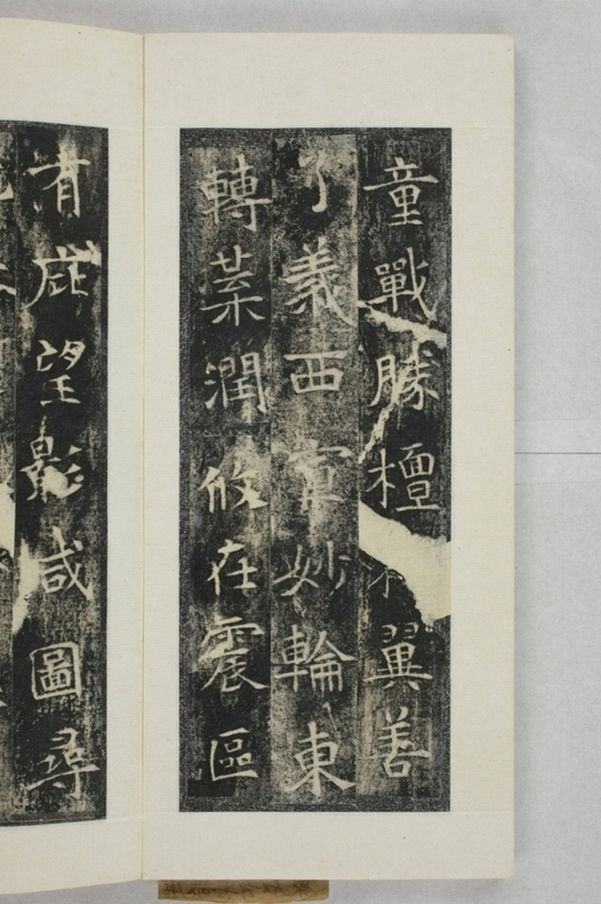 童戰勝檀翼善
了義西宣妙輪東
轉葉潤攸在震區
有庇望影咸圖尋